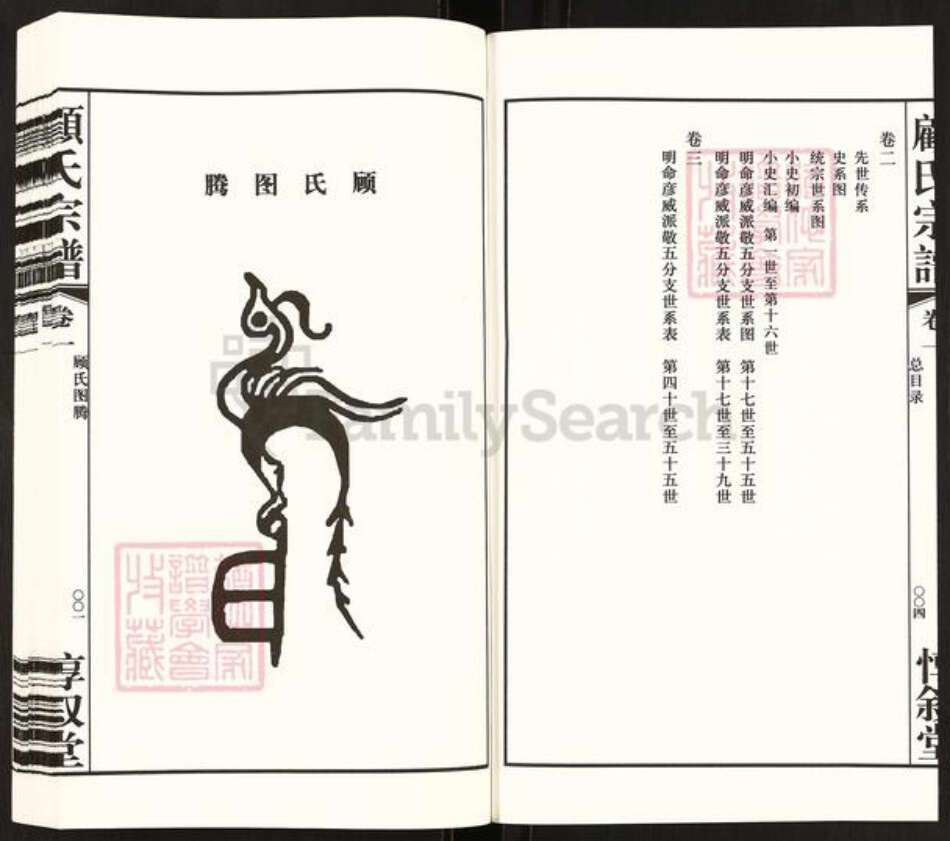 顾氏宗谱
卷一
总目录
〇〇四
惇叙堂
卷二
先世传系
史系图
统宗世系图
小史初编
小史汇编 第一世至第十六世
明命彦威派敬五分支世系图 第十七世至五十五世
明命彦威派敬五分支世系表 第十七世至三十九世
卷三
明命彦威派敬五分支世系表 第四十世至五十五世
顾氏图腾
顧氏宗譜
卷一
顾氏图腾
〇〇一
惇叙堂
FamilySearch